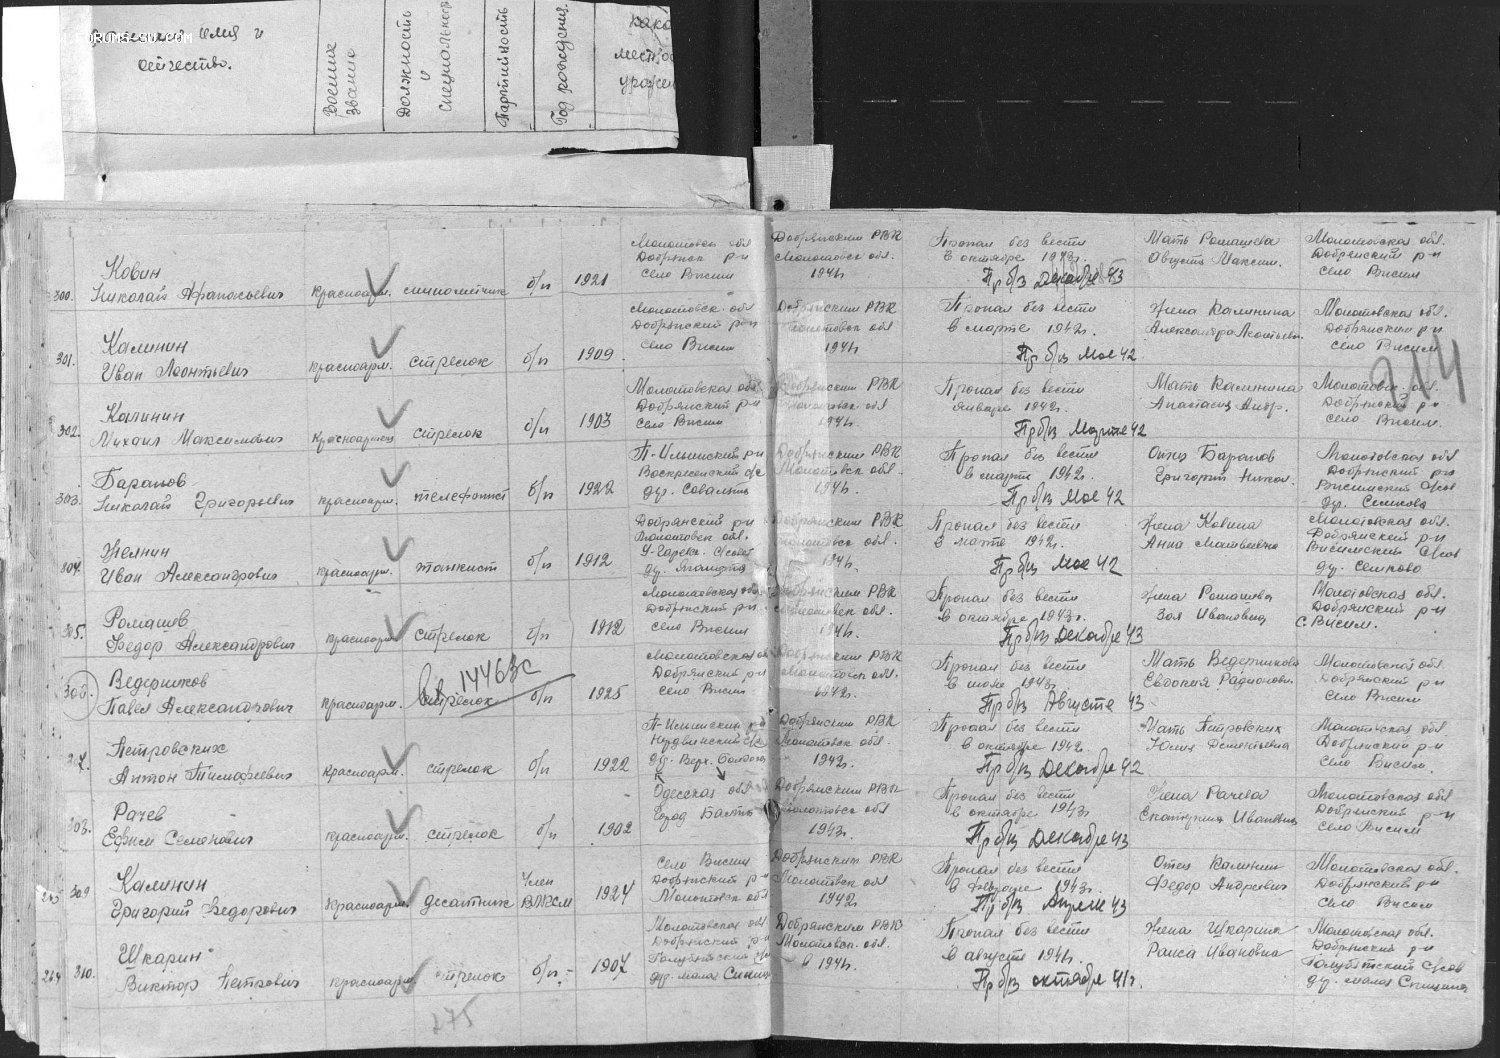 FORUMS.SU.COM
имя и
отчество.
Военное
звание
Должность
и
специальность
Партийность
Год рождения.
300.
Ковин
Николай Афанасьевич
красноарм.
минометчик
б/п
1921
Молотовск обл
Добрянск р-н
село Висим
Добрянским РВК
Молотовск обл.
1941г.
Пропал без вести
в октябре 1943г.
Пр б/з Декабре 43
Мать Ромашева
Августа Максим.
Молотовская обл.
Добрянский р-н
село Висим
301.
Калинин
Иван Леонтьевич
красноарм.
стрелок
б/п
1909
Молотовск. обл
Добрянский р-н
село Висим
Добрянским РВК
Молотовск обл
1941г
Пропал без вести
в марте 1942г.
Пр б/з Мае 42
Жена Калинина
Александра Леонтьевн.
Молотовская обл.
Добрянский р-н
село Висим
214
302.
Калинин
Михаил Максимович
красноармеец
стрелок
б/п
1903
Молотовская обл
Добрянский р-н
село Висим
Добрянским РВК
Молотовск обл
1941г.
Пропал без вести
январе 1942г.
Пр б/з Марте 42
Мать Калинина
Анастасия Андр.
Молотовск. обл.
Добрянский р-н
село Висим.
303.
Баранов
Николай Григорьевич
красноарм.
телефонист
б/п
1922
П-Ильинский р-н
Воскресенский с/с
дер.
Добрянским РВК
Молотовск обл.
1941г.
Пропал без вести
в марте 1942г.
Пр б/з Мае 42
Отец Баранов
Григорий Никол.
Молотовская обл
Добрянский р-н
Висимский с/сов
дер. Семково
304.
Иван Александрович
красноарм.
танкист
б/п
1912
Добрянский р-н
Молотовск обл.
Добрянским РВК
Молотовск обл.
1941г.
Пропал без вести
в марте 1942г.
Пр б/з Мае 42
Жена Ковина
Анна Матвеевна
Молотовская обл.
Добрянский р-н
Висимский с/сов
дер. Семково
305.
Ромашев
Федор Александрович
красноарм
стрелок
б/п
1912
Молотовская обл
Добрянский р-н
село Висим
Добрянским РВК
Молотовск обл.
1941г.
Пропал без вести
в октябре 1943г.
Пр б/з Декабре 43
Жена Ромашева
Зоя Ивановна
Молотовская обл.
Добрянский р-н
с. Висим.
306.
Ведерников
Павел Александрович
красноарм.
стрелок
14463с
б/п
1925
Молотовская обл
Добрянский р-н
село Висим
Добрянским РВК
Молотовск обл.
1942г.
Пропал без вести
в июне 1943г.
Пр б/з Августе 43
Мать Ведерникова
Евдокия Родионовн.
Молотовская обл.
Добрянский р-н
село Висим
307.
Петровских
Антон Тимофеевич
красноарм.
стрелок
б/п
1922
П-Ильинский р-н
дер. Верх.
Добрянским РВК
Молотовск обл
1942г.
Пропал без вести
в октябре 1942г.
Пр б/з Декабре 42
Мать Петровских
Юлия Дементьевна
Молотовская обл
Добрянский р-н
село Висим.
308.
Рачев
Ефим Семенович
красноарм.
стрелок
б/п
1902
Одесская обл
город Балта
Добрянским РВК
Молотовск обл
1943г.
Пропал без вести
в октябре 1943г
Пр б/з Декабре 43
Жена Рачева
Екатерина Ивановна
Молотовская обл
Добрянский р-н
село Висим
265
309
Калинин
Григорий Федорович
красноарм.
десантник
Член
ВЛКСМ
1924
село Висим
Добрянский р-н
Молотовск обл
Добрянским РВК
Молотовск обл
1942г.
Пропал без вести
в феврале 1943г.
Пр б/з Апреле 43
Отец Калинин
Федор Андреевич
Молотовская обл.
Добрянский р-н
село Висим
264
310.
Шкарин
Виктор Петрович
красноарм
стрелок
б/п -
1907
Молотовская обл
Добрянский р-н
Голубятский с/с
дер. малая
Добрянским РВК
Молотовск. обл.
в 1941г.
Пропал без вести
в августе 1941г.
Пр б/з октябре 41г.
Жена Шкарина
Раиса Ивановна
Молотовская обл.
Добрянский р-н
Голубятский с/сов
дер. малая
275